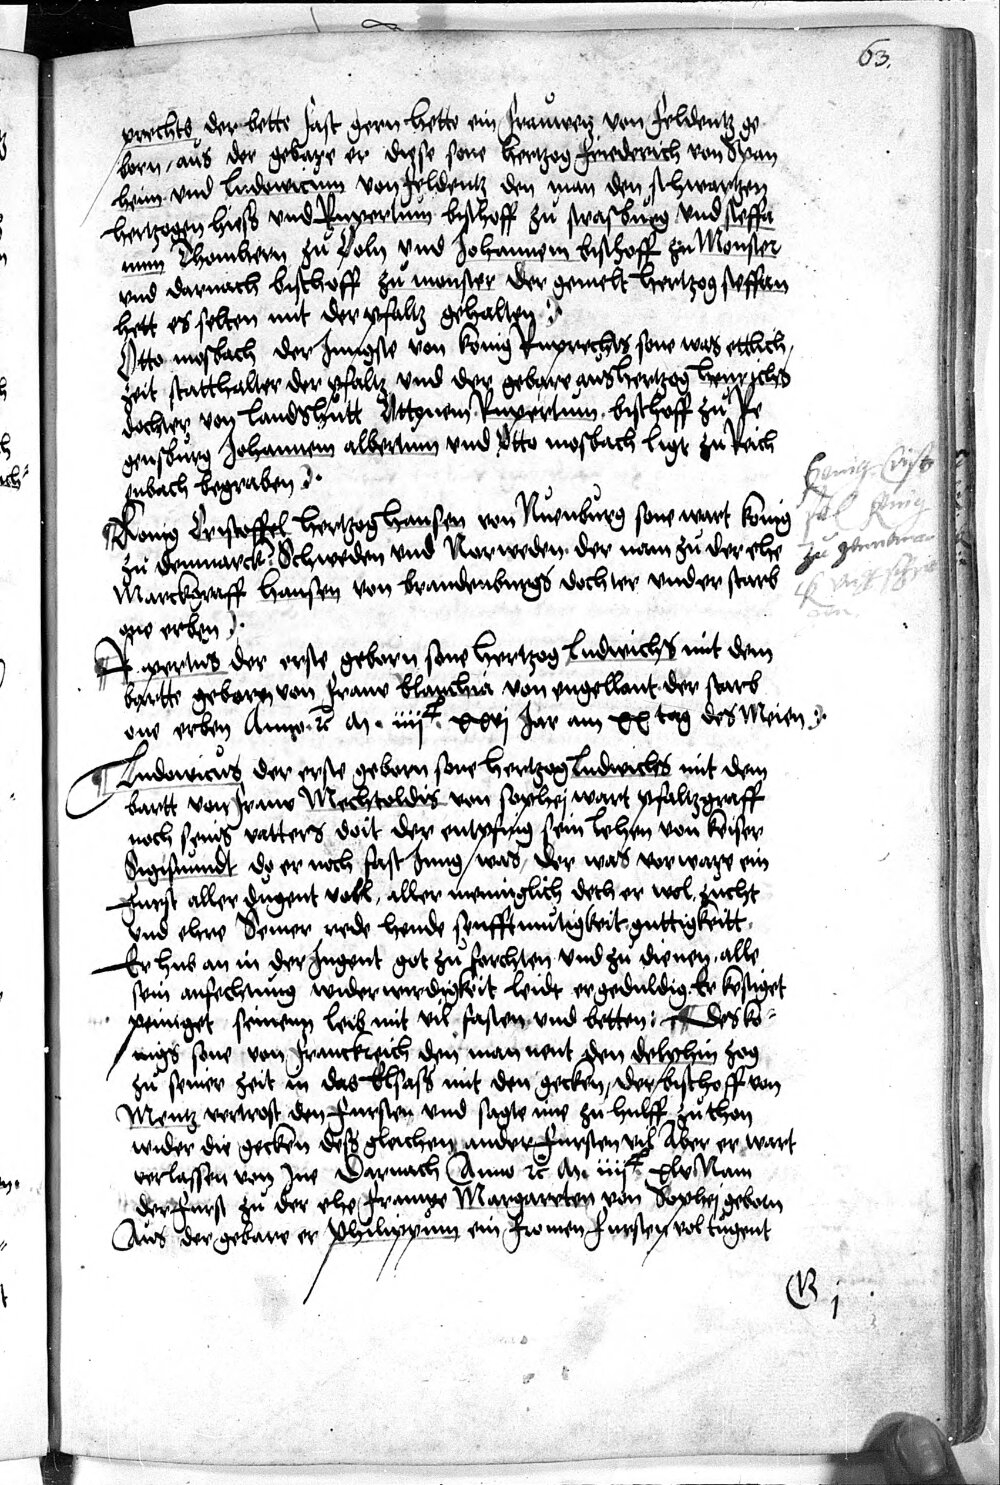 63.
prechts der bette fast gern hette ein frauwen von Feldentz ge
born, aus der gebare er diese sone hertzog Friederich von Span
heim vnd Ludowicum von Feldentz den man den schwartzen
hertzogen hiess vnd Rupertum bischoff zu straszburg vnd steffa
num Thomhern zu Coln vnd Johannem bischoff zu Monster
vnd darnach bischoff zu monster der gemelt hertzog steffan
hett es selten mit der pfaltz gehalten
Otto mosbach der Jungste von konig Ruprechts sone was ettlich
zeit statthalter der pfaltz vnd der gebare aus hertzog henrichs
dochter von landshutt Ottonem Rupertum bischoff zu Re
gensburg Johannem albertum vnd Otto mosbach ligt zu Reich
enbach begraben
Konig Cristoffel hertzog hansen von Nuenburg sone wart konig
zu denmarck Schweden vnd Norweden der nam zu der ehe
Marckgraff hansen von brandenburgs dochter vnd er starb
one erben
Rupertus der erste geborn sone hertzog Ludwichs mit dem
bartte geborn von frauw blanchia von engellant der starb
one erben Anno etc M iiijc xxvj Jar am xx tag des Meien
Ludowicus der erste geborn sone hertzog Ludwichs mit dem
bartt von frauw Mechtoldis von sophej wart pfaltzgraff
noch seins vatters doit der entpfing sein lehen von keiser
Sigismundt do er noch fast Jung was, der was vorware ein
Furst aller dugent voll, aller menniglich deth er wol, zucht
vnd ehre Seiner rede hende senfftmutigkeit guttigkeitt
Er hub an in der Jugent got zu forchten vnd zu dienen, alle
sein anfechtung widerwerdigkeit leidt er geduldig Er kestiget
peiniget seinenn leib mit vil fasten vnd betten: Des ko
nigs sone von Franckreich den man nent den delphin zog
zu seiner zeit in das Elsass mit den gecken, der bischoff von
Mentz vertrost den Fursten vnd sagte ime zu hulff zu thon
wider die gecken dess gleichen ander Fursten vil Aber er wart
verlassen von Jne Darnach Anno etc M iiijc xlv Nam
der Furst zu der ehe Frauwe Margareten von Sophej geborn
Aus der gebare er Philippum ein Fromen Fursten vol tugent
G j